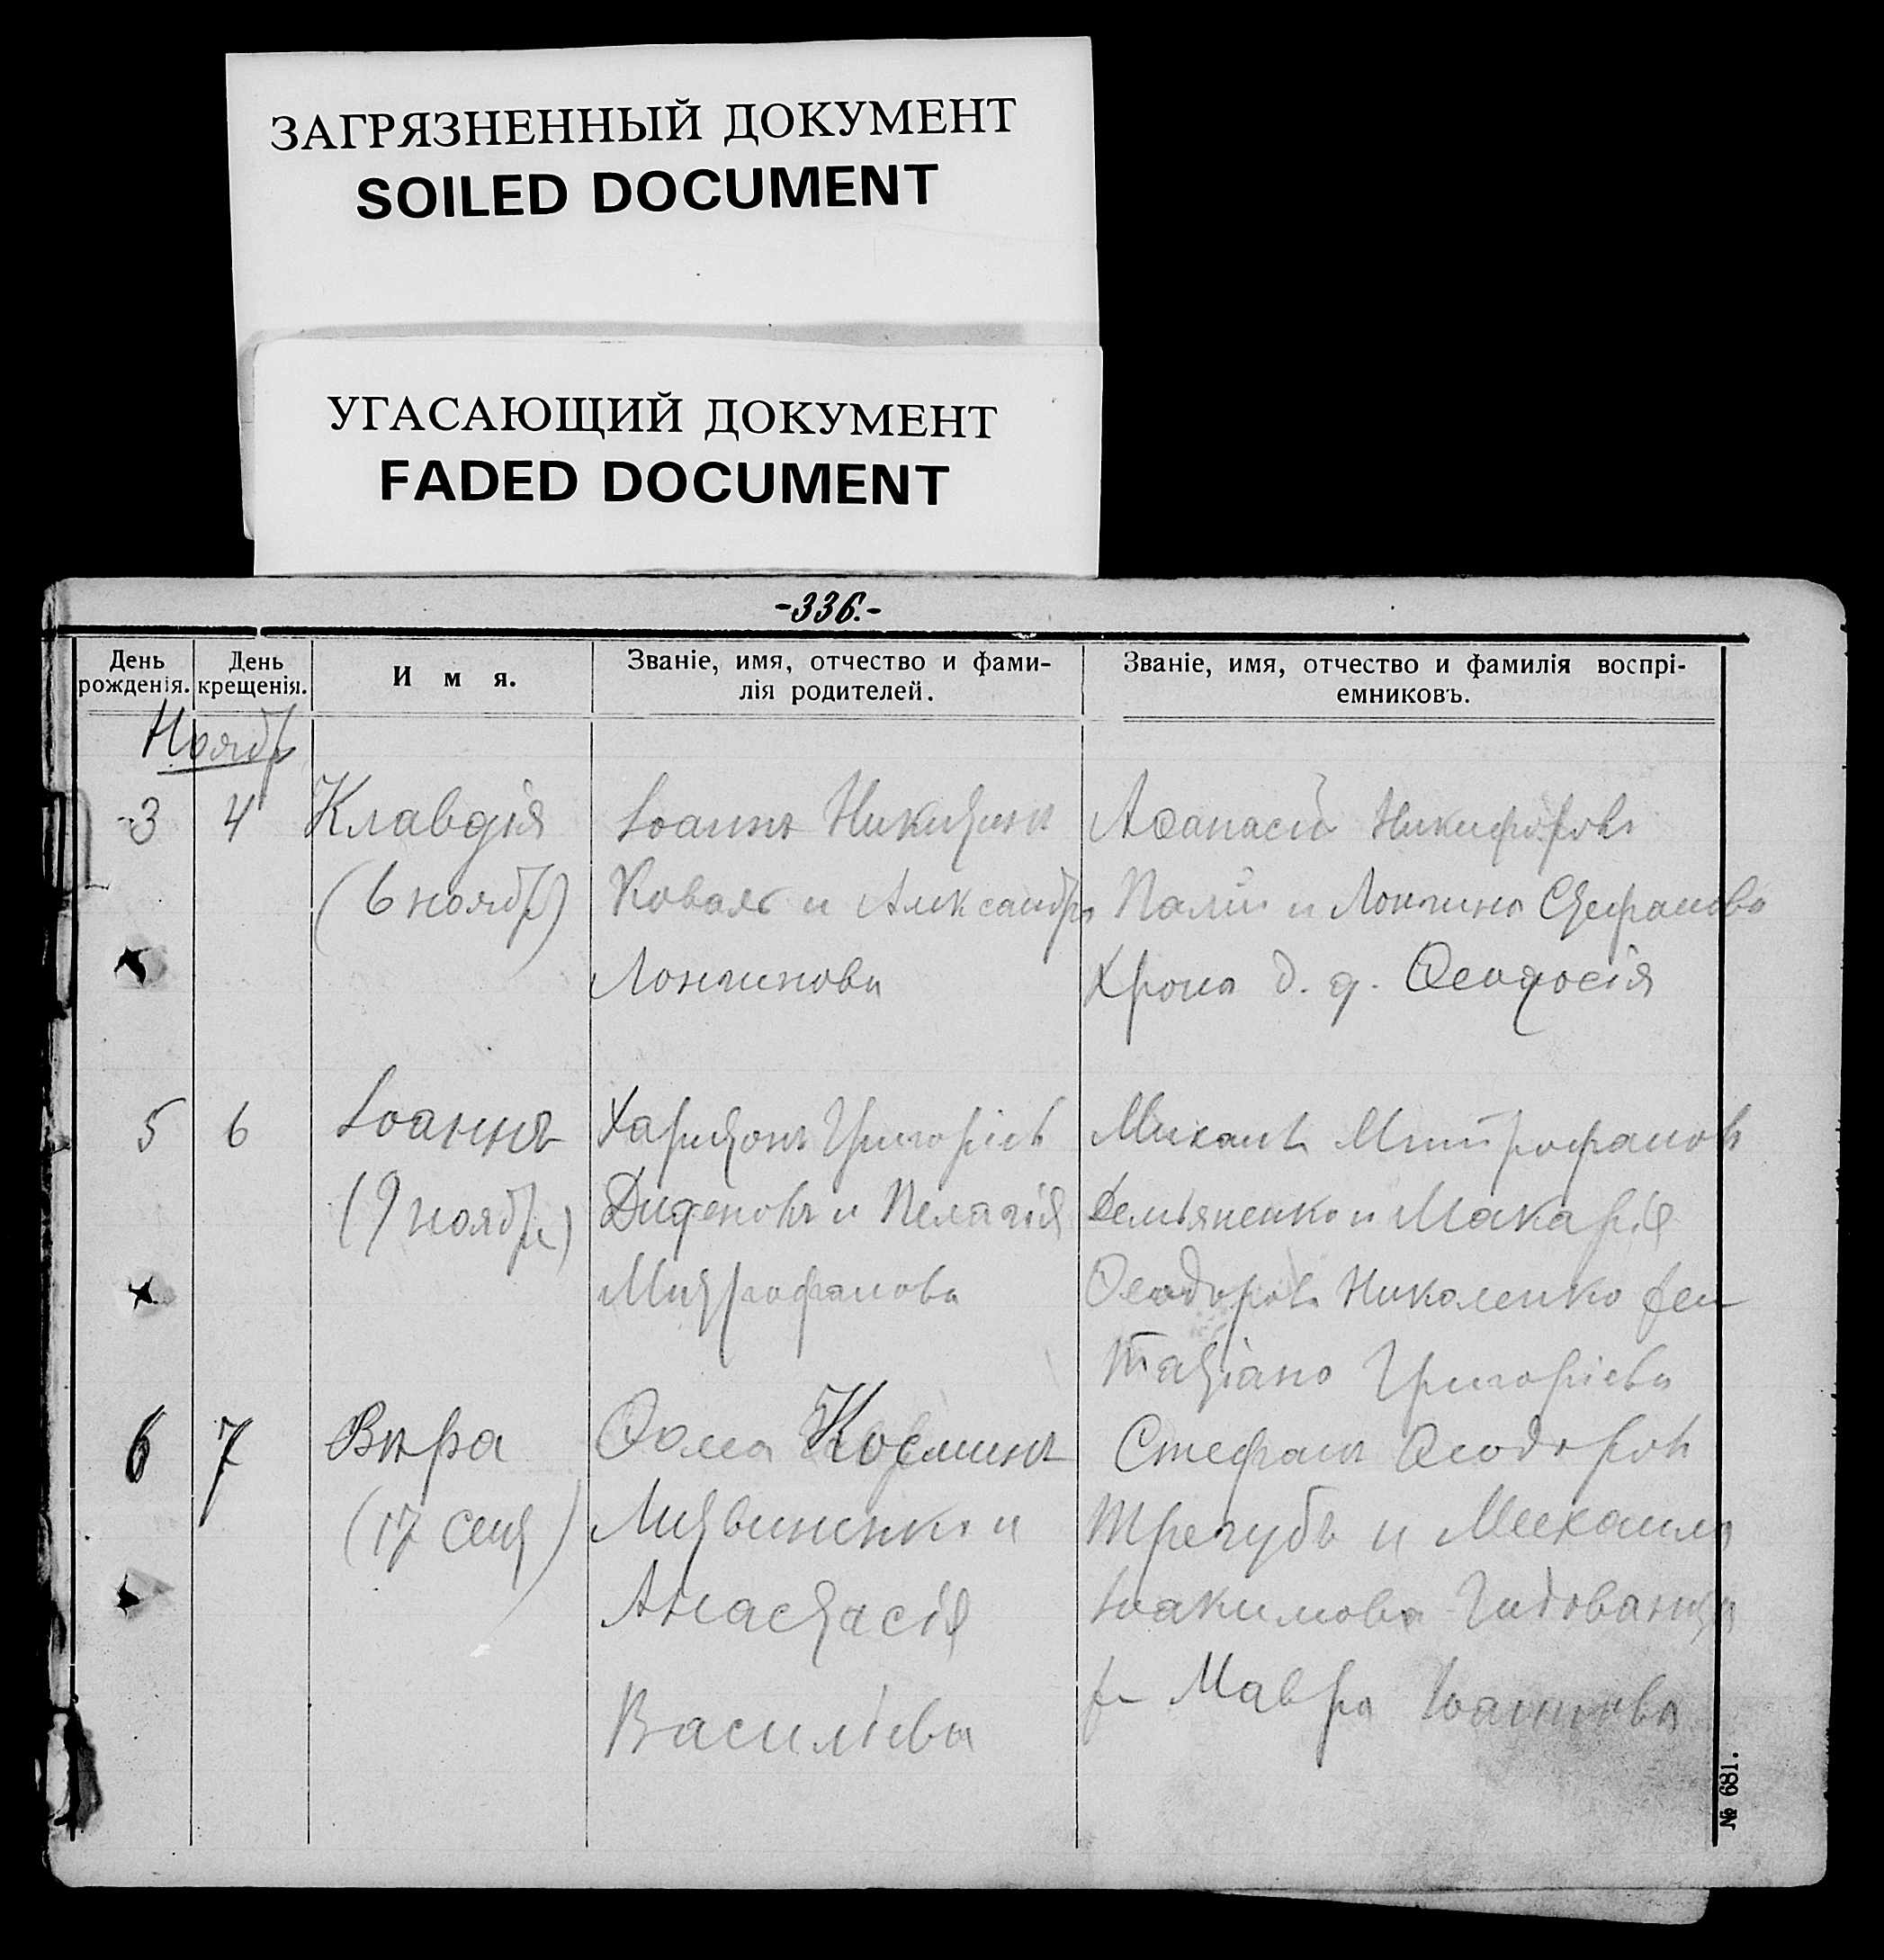 ЗАГРЯЗНЕННЫЙ ДОКУМЕНТ
SOILED DOCUMENT
УГАСАЮЩИЙ ДОКУМЕНТ
FADED DOCUMENT
-336.-
День рожденія.
День крещенія.
Имя.
Званіе, имя, отчество и фами-
лія родителей.
Званіе, имя, отчество и фамилія воспрі-
емниковъ.
Ноябр
3 4 Клавдія
(6 ноябр)
Іоаннъ Никитинъ
Коваль и Александра
Лонгинова
Аѳанасій Никифоровъ
Палій и Лонгина Стефанова
Хрона д. д. Ѳеодосія
5 6 Іоаннъ
(9 ноябр)
Харитонъ Григоріевъ
Диденковъ и Пелагія
Митрофанова
Михаилъ Митрофановъ
Демьяненко и Макарія
Ѳеодоровъ Николенко
Татіана Григоріева
6 7 Вѣра
(17 сент)
Ѳома Косминъ
Литвиненко и
Анастасія
Василіева
Стефанъ Ѳеодоровъ
Трегубъ и Михаила
Іоакимова
Мавра Іоаннова
№ 681.